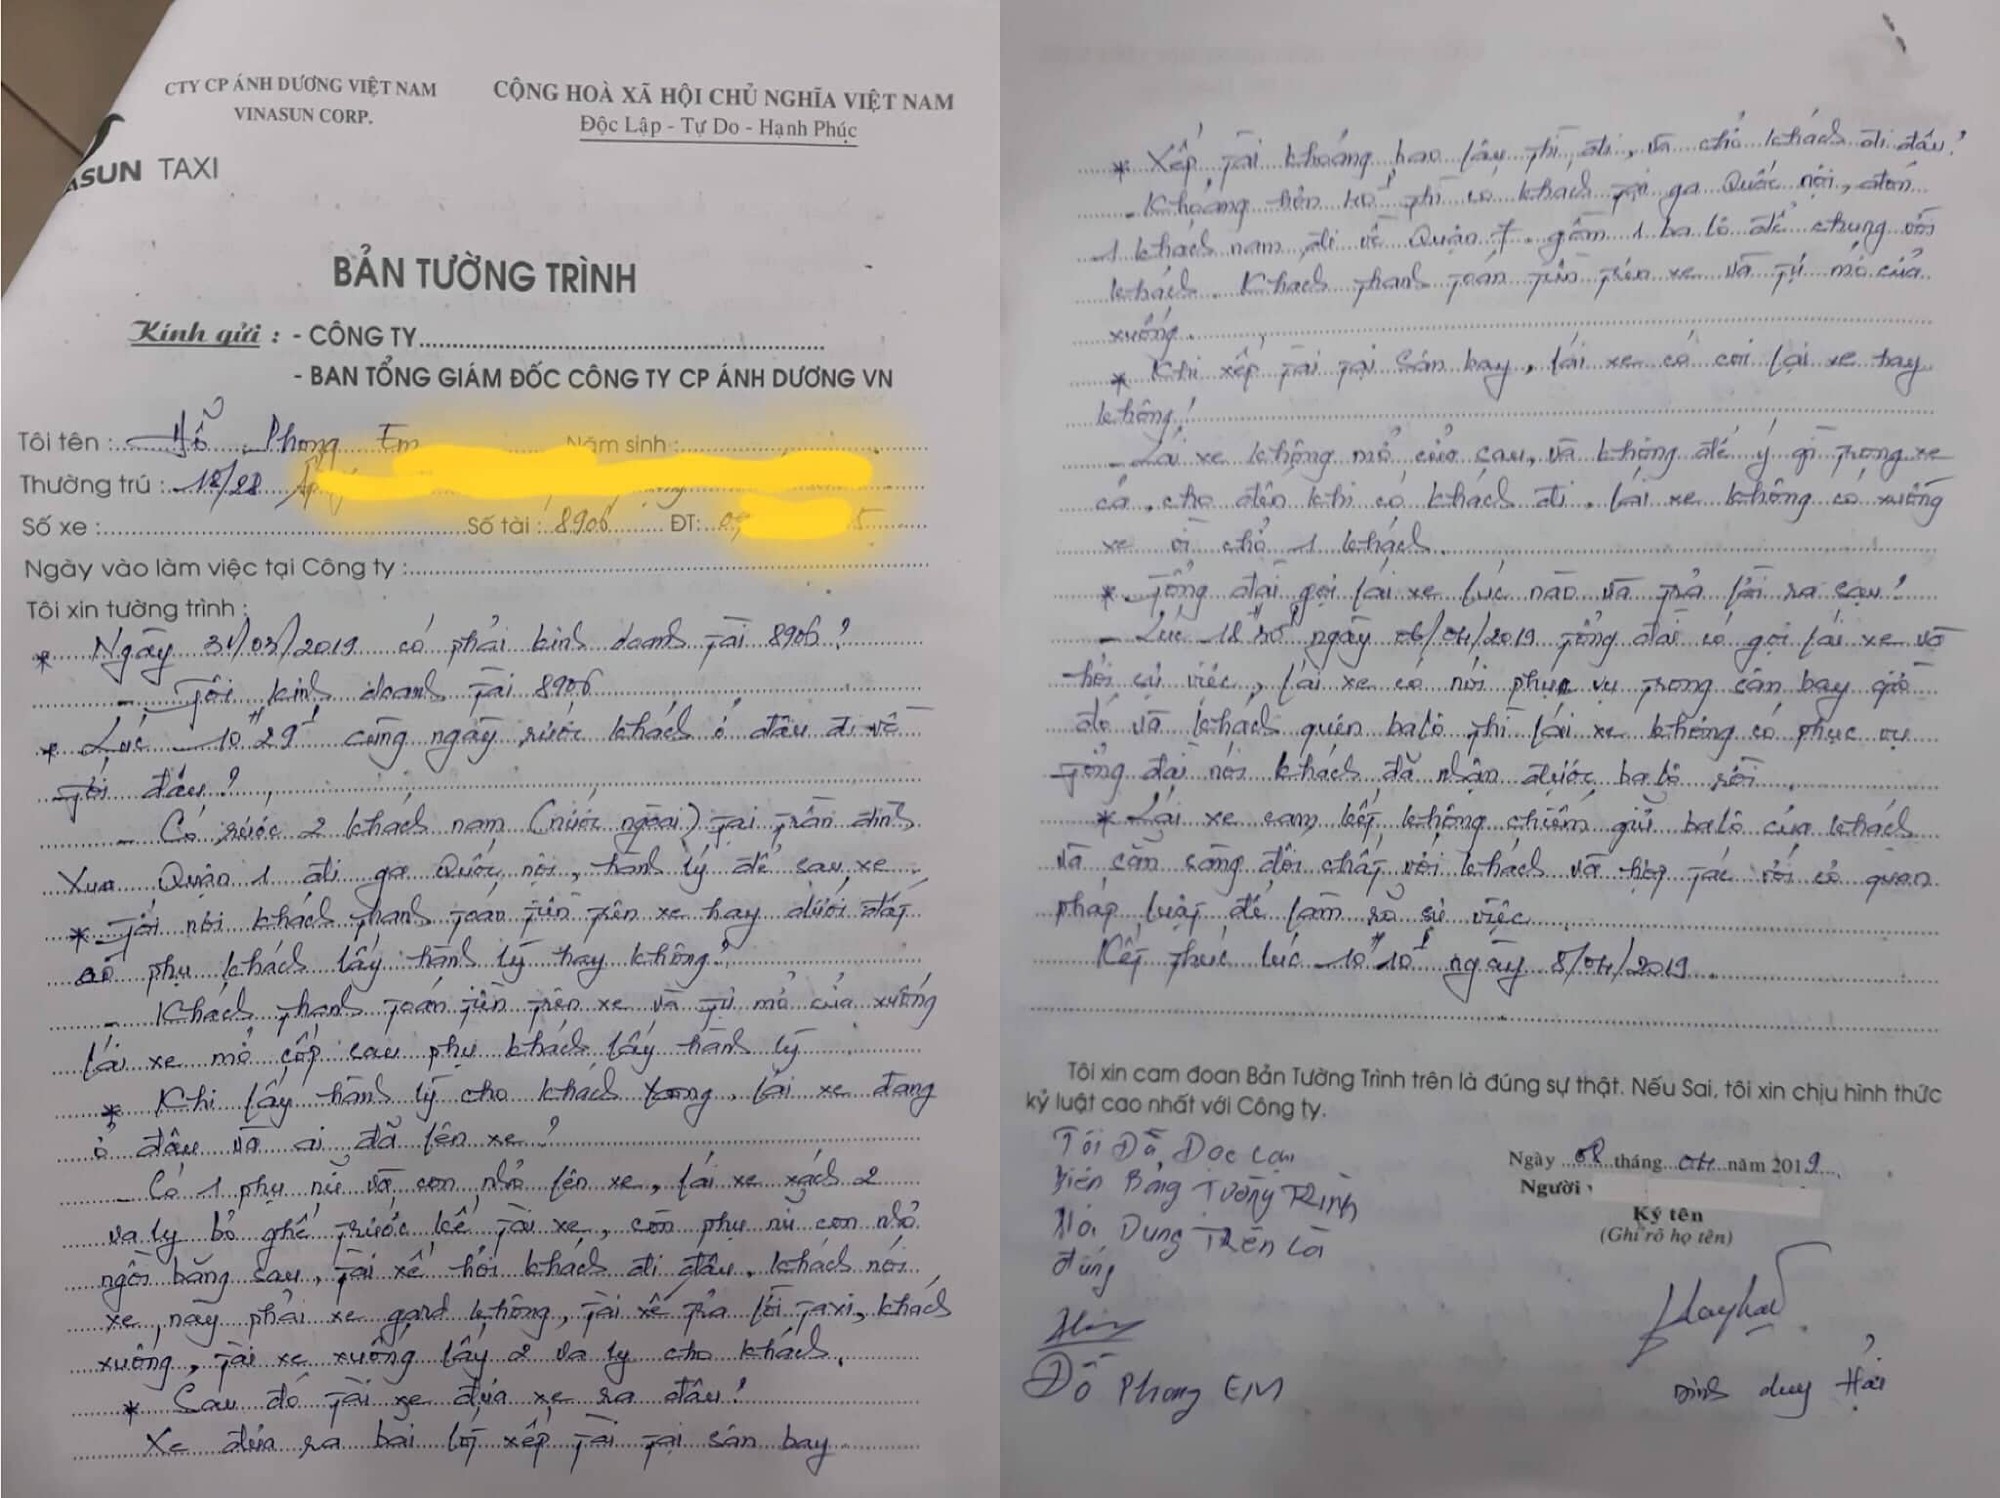 CTY CP ÁNH DƯƠNG VIỆT NAM
VINASUN CORP.
CỘNG HOÀ XÃ HỘI CHỦ NGHĨA VIỆT NAM
Độc Lập - Tự Do - Hạnh Phúc
ASUN TAXI
BẢN TƯỜNG TRÌNH
Kính gửi : - CÔNG TY
- BAN TỔNG GIÁM ĐỐC CÔNG TY CP ÁNH DƯƠNG VN
Tôi tên : Đỗ Phong Em Năm sinh :
Thường trú : 18/28 Ấp
Số xe : Số tài : 8906 ĐT: 09 5
Ngày vào làm việc tại Công ty :
Tôi xin tường trình :
* Ngày 31/03/2019 có phải kinh doanh tài 8906?
- Tôi kinh doanh tài 8906
* Lúc 10H29' cùng ngày rước khách ở đâu đi về
tới đâu?
- Có rước 2 khách nam (nước ngoài) tại trần đình
Xu Quận 1 đi ga Quốc nội, hành lý để sau xe
* Tới nơi khách thanh toán tiền trên xe hay dưới đất
có phụ khách lấy hành lý hay không?
- Khách thanh toán tiền trên xe và tự mở cửa xuống
lái xe mở cốp sau phụ khách lấy hành lý
* Khi lấy hành lý cho khách xong, lái xe đang
ở đâu và ai đã lên xe?
- Có 1 phụ nữ và con nhỏ lên xe, lái xe xách 2
va ly bỏ ghế trước kế tài xe, còn phụ nữ con nhỏ
ngồi băng sau, tài xế hỏi khách đi đâu, khách nói
xe này phải xe gard không, tài xế trả lời taxi, khách
xuống, tài xe xuống lấy 2 va ly cho khách.
* Sau đó tài xe đưa xe ra đâu?
Xe đưa ra bãi lót xếp tài tại sân bay
* Xếp tài khoảng bao lâu thì đi, và chở khách đi đâu?
- Khoảng hơn thì có khách tại ga Quốc nội, đón
1 khách nam đi về Quận 7 gồm 1 ba lô để chung với
khách. Khách thanh toán tiền trên xe và tự mở cửa
xuống.
* Khi xếp tài tại sân bay, lái xe có coi lại xe hay
không?
- Lái xe không mở cửa sau, và không để ý gì trong xe
cả, cho đến khi có khách đi. lái xe không có xuống
xe vì chở 1 khách.
* Tổng đài gọi lái xe lúc nào và trả lời ra sao?
- Lúc ngày 06/04/2019 tổng đài có gọi lái xe và
hỏi sự việc, lái xe có nói phục vụ trong sân bay giờ
đó và khách quên balô thì lái xe không có phục vụ
tổng đài nói khách đã nhận được ba lô rồi.
* Lái xe cam kết không chiếm giữ balô của khách
và sẵn sàng đối chất với khách và hợp tác với cơ quan
pháp luật để làm rõ sự việc
Kết thúc lúc 10H10' ngày 8/04/2019
Tôi xin cam đoan Bản Tường Trình trên là đúng sự thật. Nếu Sai, tôi xin chịu hình thức
kỷ luật cao nhất với Công ty.
Tôi Đã Đọc Lại
Biên Bảng Tường Trình
Nội Dung Trên Là
đúng
Đỗ Phong EM
Ngày 08 tháng 04 năm 2019
Người
Ký tên
(Ghi rõ họ tên)
Đinh duy Hải